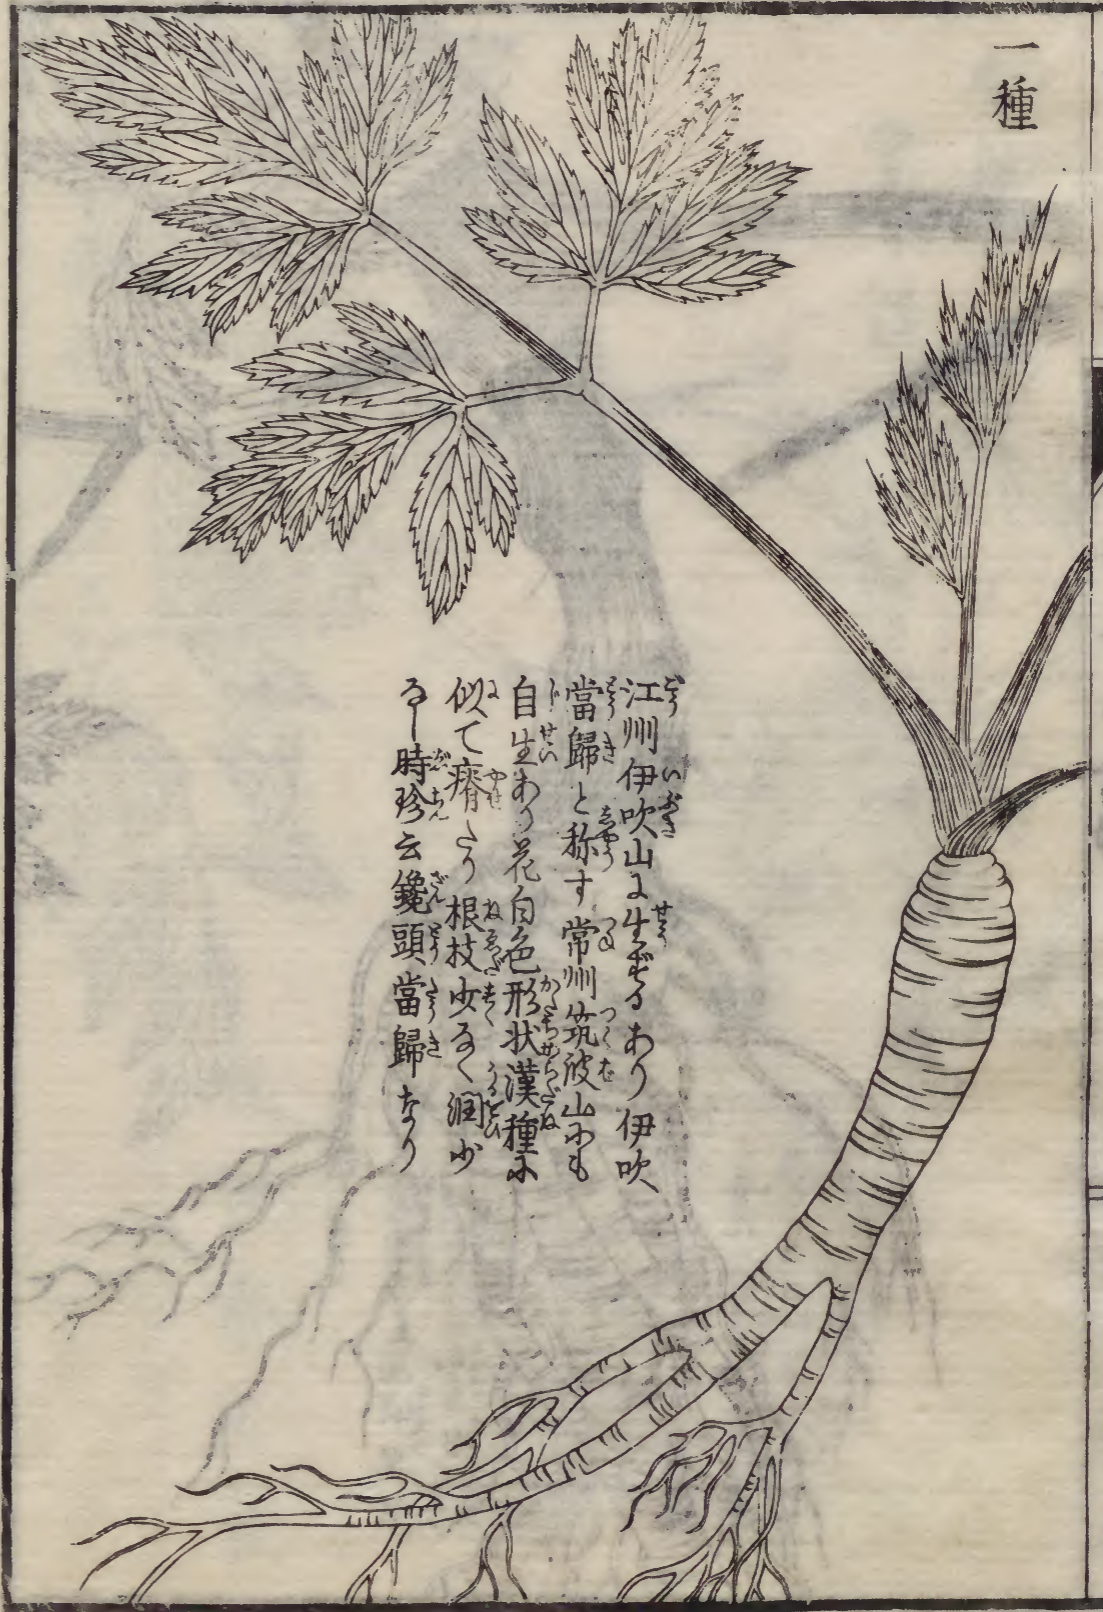 一種
江州伊吹山に生ずるあり伊吹
當歸と称す常州筑波山にも
自生あり花白色形状漢種に
似て瘠たり根枝少なく潤少
なし時珍云鑱頭當歸なり